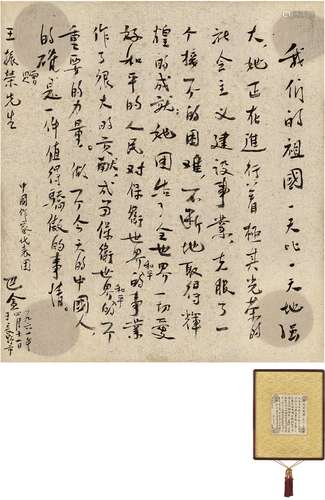 我们的祖國一天比一天地强
大，她正在進行着極其光荣的
社会主义建設事業，克服了一
个接一个的困难，不断地取得輝
煌的成就；她团结了全世界一切爱
好和平的人民，对保衛世界和平的事業
作了很大的贡献，成为保衛世界和平的不
重要的力量。做一个今天的中國人
的确是一件值得驕傲的事情。
赠
王振荣先生
中國作家代表团
巴金
一九六一年
四月十一日